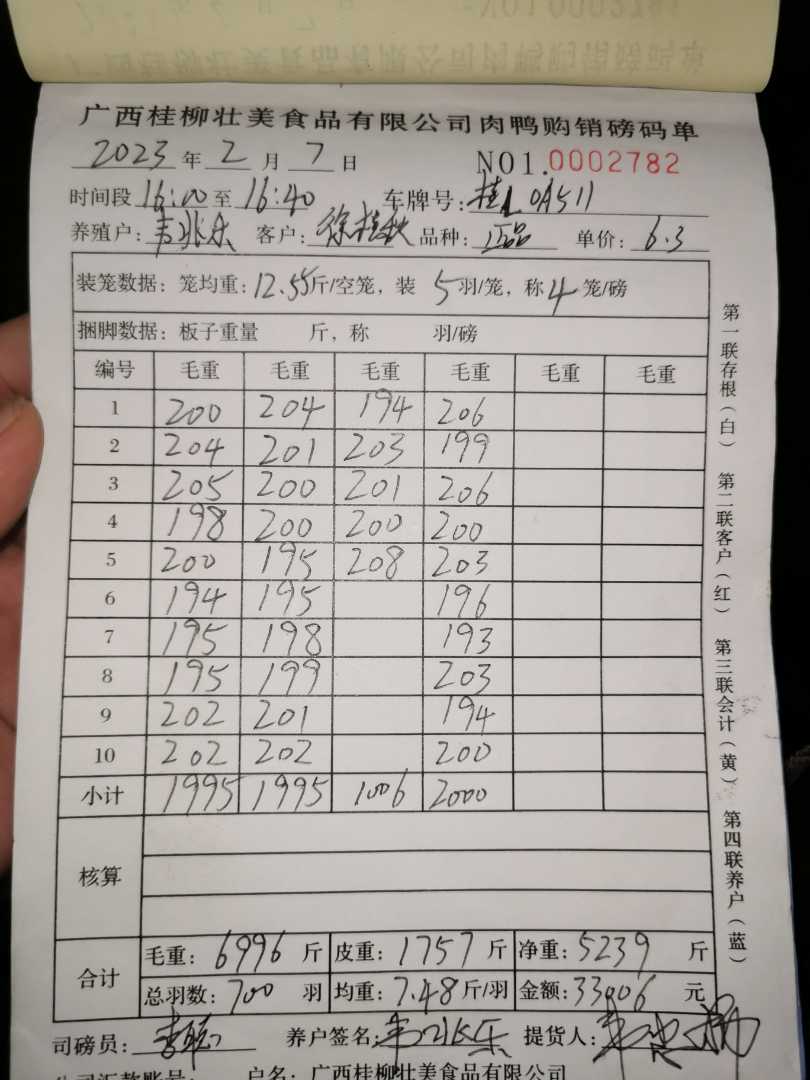 广西桂柳壮美食品有限公司肉鸭购销磅码单
2023 年 2 月 7 日 NO1.0002782
时间段 16:00 至 16:40 车牌号: 桂L 0A511
养殖户: 韦兆乐 客户: 徐桂秋 品种: 正品 单价: 6.3
装笼数据: 笼均重: 12.55 斤/空笼, 装 5 羽/笼, 称 4 笼/磅
捆脚数据: 板子重量 斤, 称 羽/磅
编号 毛重 毛重 毛重 毛重 毛重 毛重
1 200 204 194 206
2 204 201 203 199
3 205 200 201 206
4 198 200 200 200
5 200 195 208 203
6 194 195 196
7 195 198 193
8 195 199 203
9 202 201 194
10 202 202 200
小计 1995 1995 1006 2000
核算
合计
毛重: 6996 斤 皮重: 1757 斤 净重: 5239 斤
总羽数: 700 羽 均重: 7.48 斤/羽 金额: 33006 元
司磅员: 养户签名: 韦兆乐 提货人:
公司汇款账号: 户名: 广西桂柳壮美食品有限公司
第一联存根(白) 第二联客户(红) 第三联会计(黄) 第四联养户(蓝)